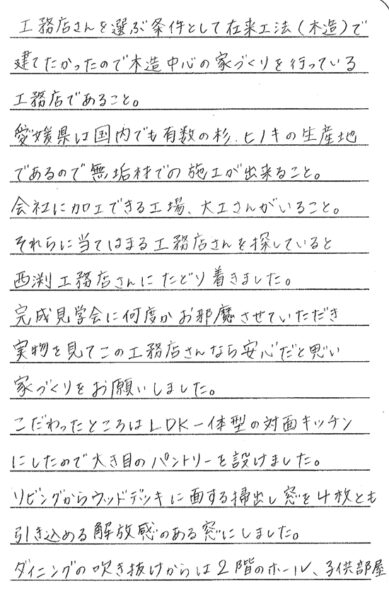 工務店さんを選ぶ条件として在来工法(木造)で
建てたかったので木造中心の家づくりを行っている
工務店であること。
愛媛県は国内でも有数の杉、ヒノキの生産地
であるので無垢材での施工が出来ること。
会社に加工できる工場、大工さんがいること。
それらに当てはまる工務店さんを探していると
西渕工務店さんにたどり着きました。
完成見学会に何度かお邪魔させていただき
実物を見てこの工務店さんなら安心だと思い
家づくりをお願いしました。
こだわったところはLDK一体型の対面キッチン
にしたので大き目のパントリーを設けました。
リビングからウッドデッキに面する掃出し窓を4枚とも
引き込める解放感のある窓にしました。
ダイニングの吹き抜けからは2階のホール、子供部屋